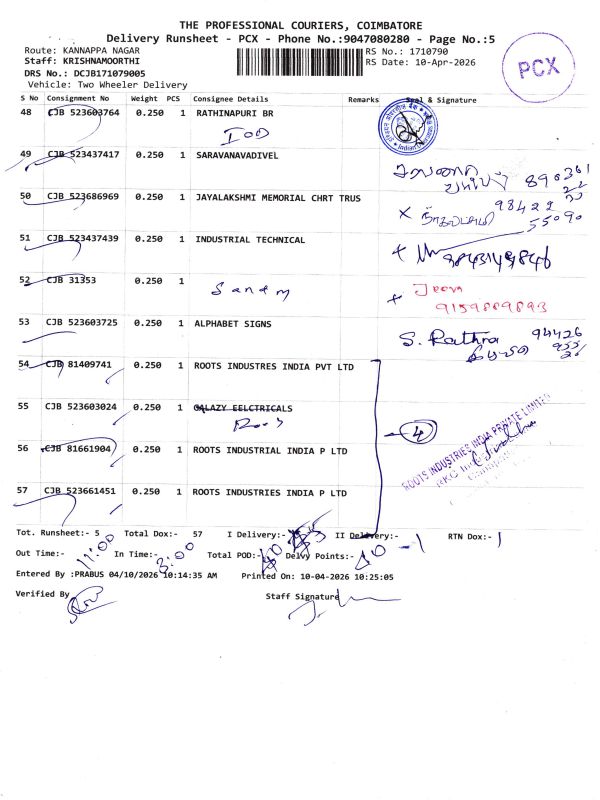 THE PROFESSIONAL COURIERS, COIMBATORE
Delivery Runsheet - PCX - Phone No.:9047080280 - Page No.:5
Route: KANNAPPA NAGAR
RS No.: 1710790
Staff: KRISHNAMOORTHI
RS Date: 10-Apr-2026
DRS No.: DCJB171079005
Vehicle: Two Wheeler Delivery
PCX
S No Consignment No Weight PCS Consignee Details Remarks Seal & Signature
48 CJB 523603764 0.250 1 RATHINAPURI BR
IOD
49 CJB 523437417 0.250 1 SARAVANAVADIVEL
890361
50 CJB 523686969 0.250 1 JAYALAKSHMI MEMORIAL CHRT TRUS
98422
55090
51 CJB 523437439 0.250 1 INDUSTRIAL TECHNICAL
52 CJB 31353 0.250 1
53 CJB 523603725 0.250 1 ALPHABET SIGNS
S. Rathna 94426
54 CJB 81409741 0.250 1 ROOTS INDUSTRES INDIA PVT LTD
55 CJB 523603024 0.250 1 GALAZY EELCTRICALS
4
ROOTS INDUSTRIES INDIA PRIVATE LIMITED
56 CJB 81661904 0.250 1 ROOTS INDUSTRIAL INDIA P LTD
57 CJB 523661451 0.250 1 ROOTS INDUSTRIES INDIA P LTD
Tot. Runsheet:- 5 Total Dox:- 57 I Delivery:- II Delivery:- RTN Dox:- 1
Out Time:- 11:00 In Time:- 3:00 Total POD:- 40 Delvy Points:- 40 -1
Entered By :PRABUS 04/10/2026 10:14:35 AM Printed On: 10-04-2026 10:25:05
Verified By
Staff Signature